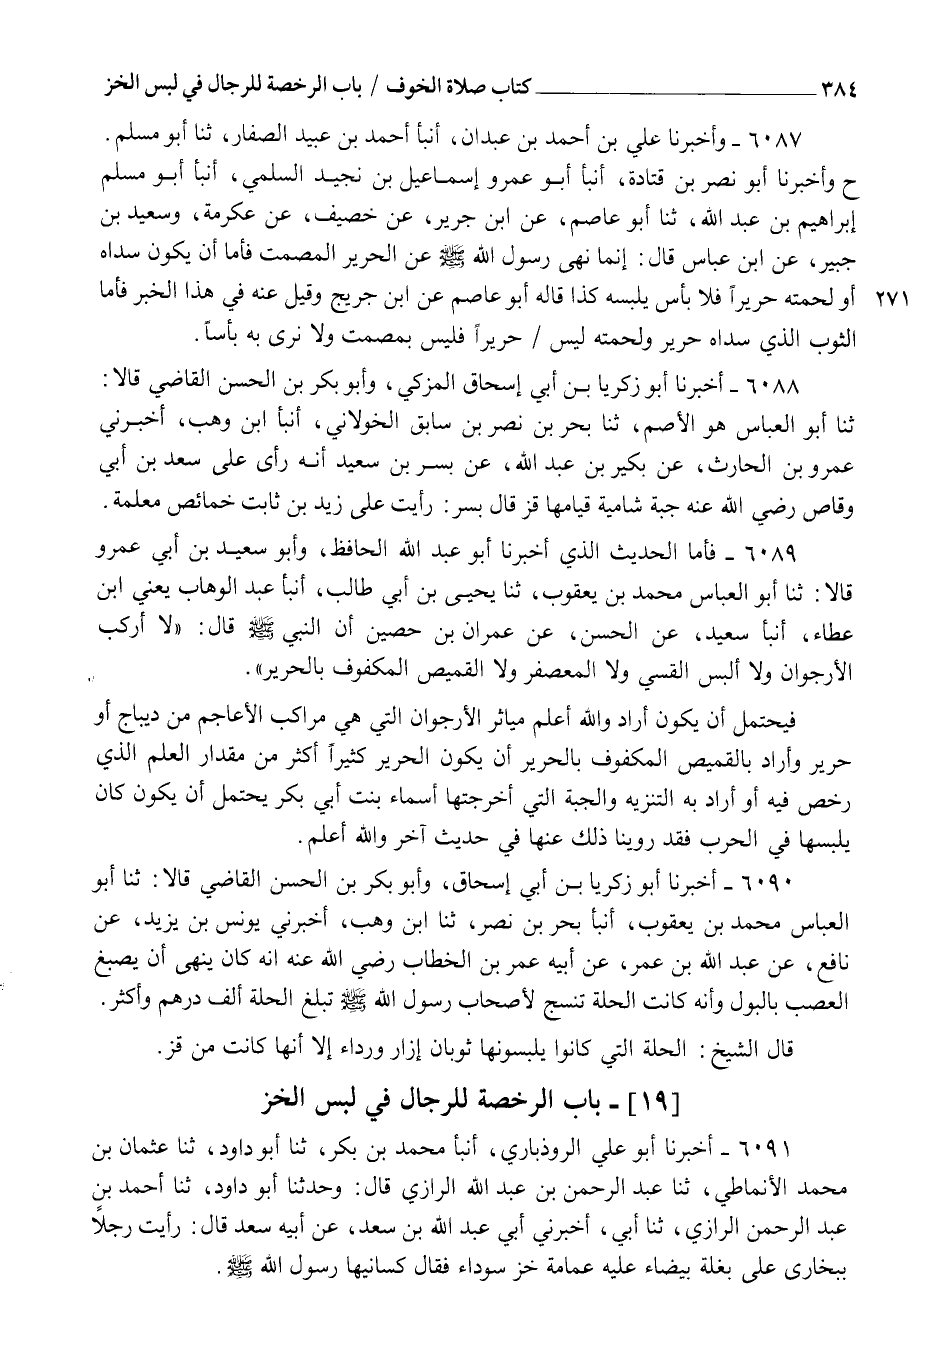 ٣٨٤ ــــــــــــــــــــــــــــــــــــ كتاب صلاة الخوف / باب الرخصة للرجال في لبس الخز
٦٠٨٧ ـ وأخبرنا علي بن أحمد بن عبدان، أنبأ أحمد بن عبيد الصفار، ثنا أبو مسلم.
ح وأخبرنا أبو نصر بن قتادة، أنبأ أبـو عمرو إسمـاعيل بن نجيـد السلمي، أنبأ أبـو مسلم
إبراهيم بن عبد الله، ثنا أبو عاصم، عن ابن جرير، عن خصيف، عن عكرمة، وسعيد بن
جبير، عن ابن عباس قال: إنما نهى رسول الله ﷺ عن الحرير المصمت فأما أن يكون سداه
٢٧١ أو لحمته حريراً فلا بأس يلبسه كذا قاله أبو عاصم عن ابن جريج وقيل عنه في هذا الخبر فأما
الثوب الذي سداه حرير ولحمته ليس / حريراً فليس بمصمت ولا نرى به بأساً.
٦٠٨٨ ـ أخبرنا أبو زكريا بـن أبي إسحاق المزكي، وأبو بكر بن الحسن القاضي قالا:
ثنا أبو العباس هو الأصم، ثنا بحر بن نصر بن سابق الخولاني، أنبأ ابن وهب، أخبـرني
عمرو بن الحارث، عن بكير بن عبد الله، عن بسـر بن سعيد أنـه رأى على سعد بن أبي
وقاص رضي الله عنه جبة شامية قيامها قز قال بسر: رأيت على زيد بن ثابت خمائص معلمة.
٦٠٨٩ ـ فأما الحديث الذي أخبرنا أبو عبد الله الحافظ، وأبو سعيـد بن أبي عمرو
قالا: ثنا أبو العباس محمد بن يعقوب، ثنا يحيـى بن أبي طالب، أنبأ عبد الوهاب يعني ابن
عطاء، أنبأ سعيد، عن الحسن، عن عمران بن حصين أن النبي ﷺ قال: «لا أركب
الأرجوان ولا ألبس القسي ولا المعصفر ولا القميص المكفوف بالحرير».
فيحتمل أن يكون أراد والله أعلم مياثر الأرجوان التي هي مراكب الأعاجم من ديباج أو
حرير وأراد بالقميص المكفوف بالحرير أن يكون الحرير كثيراً أكثر من مقدار العلم الذي
رخص فيه أو أراد به التنزيه والجبة التي أخرجتها أسماء بنت أبي بكر يحتمل أن يكون كان
يلبسها في الحرب فقد روينا ذلك عنها في حديث آخر والله أعلم.
٦٠٩٠ ـ أخبرنا أبو زكريا بـن أبي إسحاق، وأبو بكر بن الحسن القاضي قالا: ثنا أبو
العباس محمد بن يعقوب، أنبأ بحر بن نصر، ثنا ابن وهب، أخبرني يونس بن يزيد، عن
نافع، عن عبد الله بن عمر، عن أبيه عمر بن الخطاب رضي الله عنه انه كان ينهى أن يصبغ
العصب بالبول وأنه كانت الحلة تنسج لأصحاب رسول الله ﷺ تبلغ الحلة ألف درهم وأكثر.
قال الشيخ: الحلة التي كانوا يلبسونها ثوبان إزار ورداء إلا أنها كانت من قز.
[١٩] ـ باب الرخصة للرجال في لبس الخز
٦٠٩١ ـ أخبرنا أبو علي الروذباري، أنبأ محمد بن بكر، ثنا أبو داود، ثنا عثمان بن
محمد الأنماطي، ثنا عبد الرحمن بن عبد الله الرازي قال: وحدثنا أبو داود، ثنا أحمد بن
عبد الرحمن الرازي، ثنا أبي، أخبرني أبي عبد الله بن سعد، عن أبيه سعد قال: رأيت رجلًا
ببخارى على بغلة بيضاء عليه عمامة خز سوداء فقال كسانيها رسول الله ﷺ.